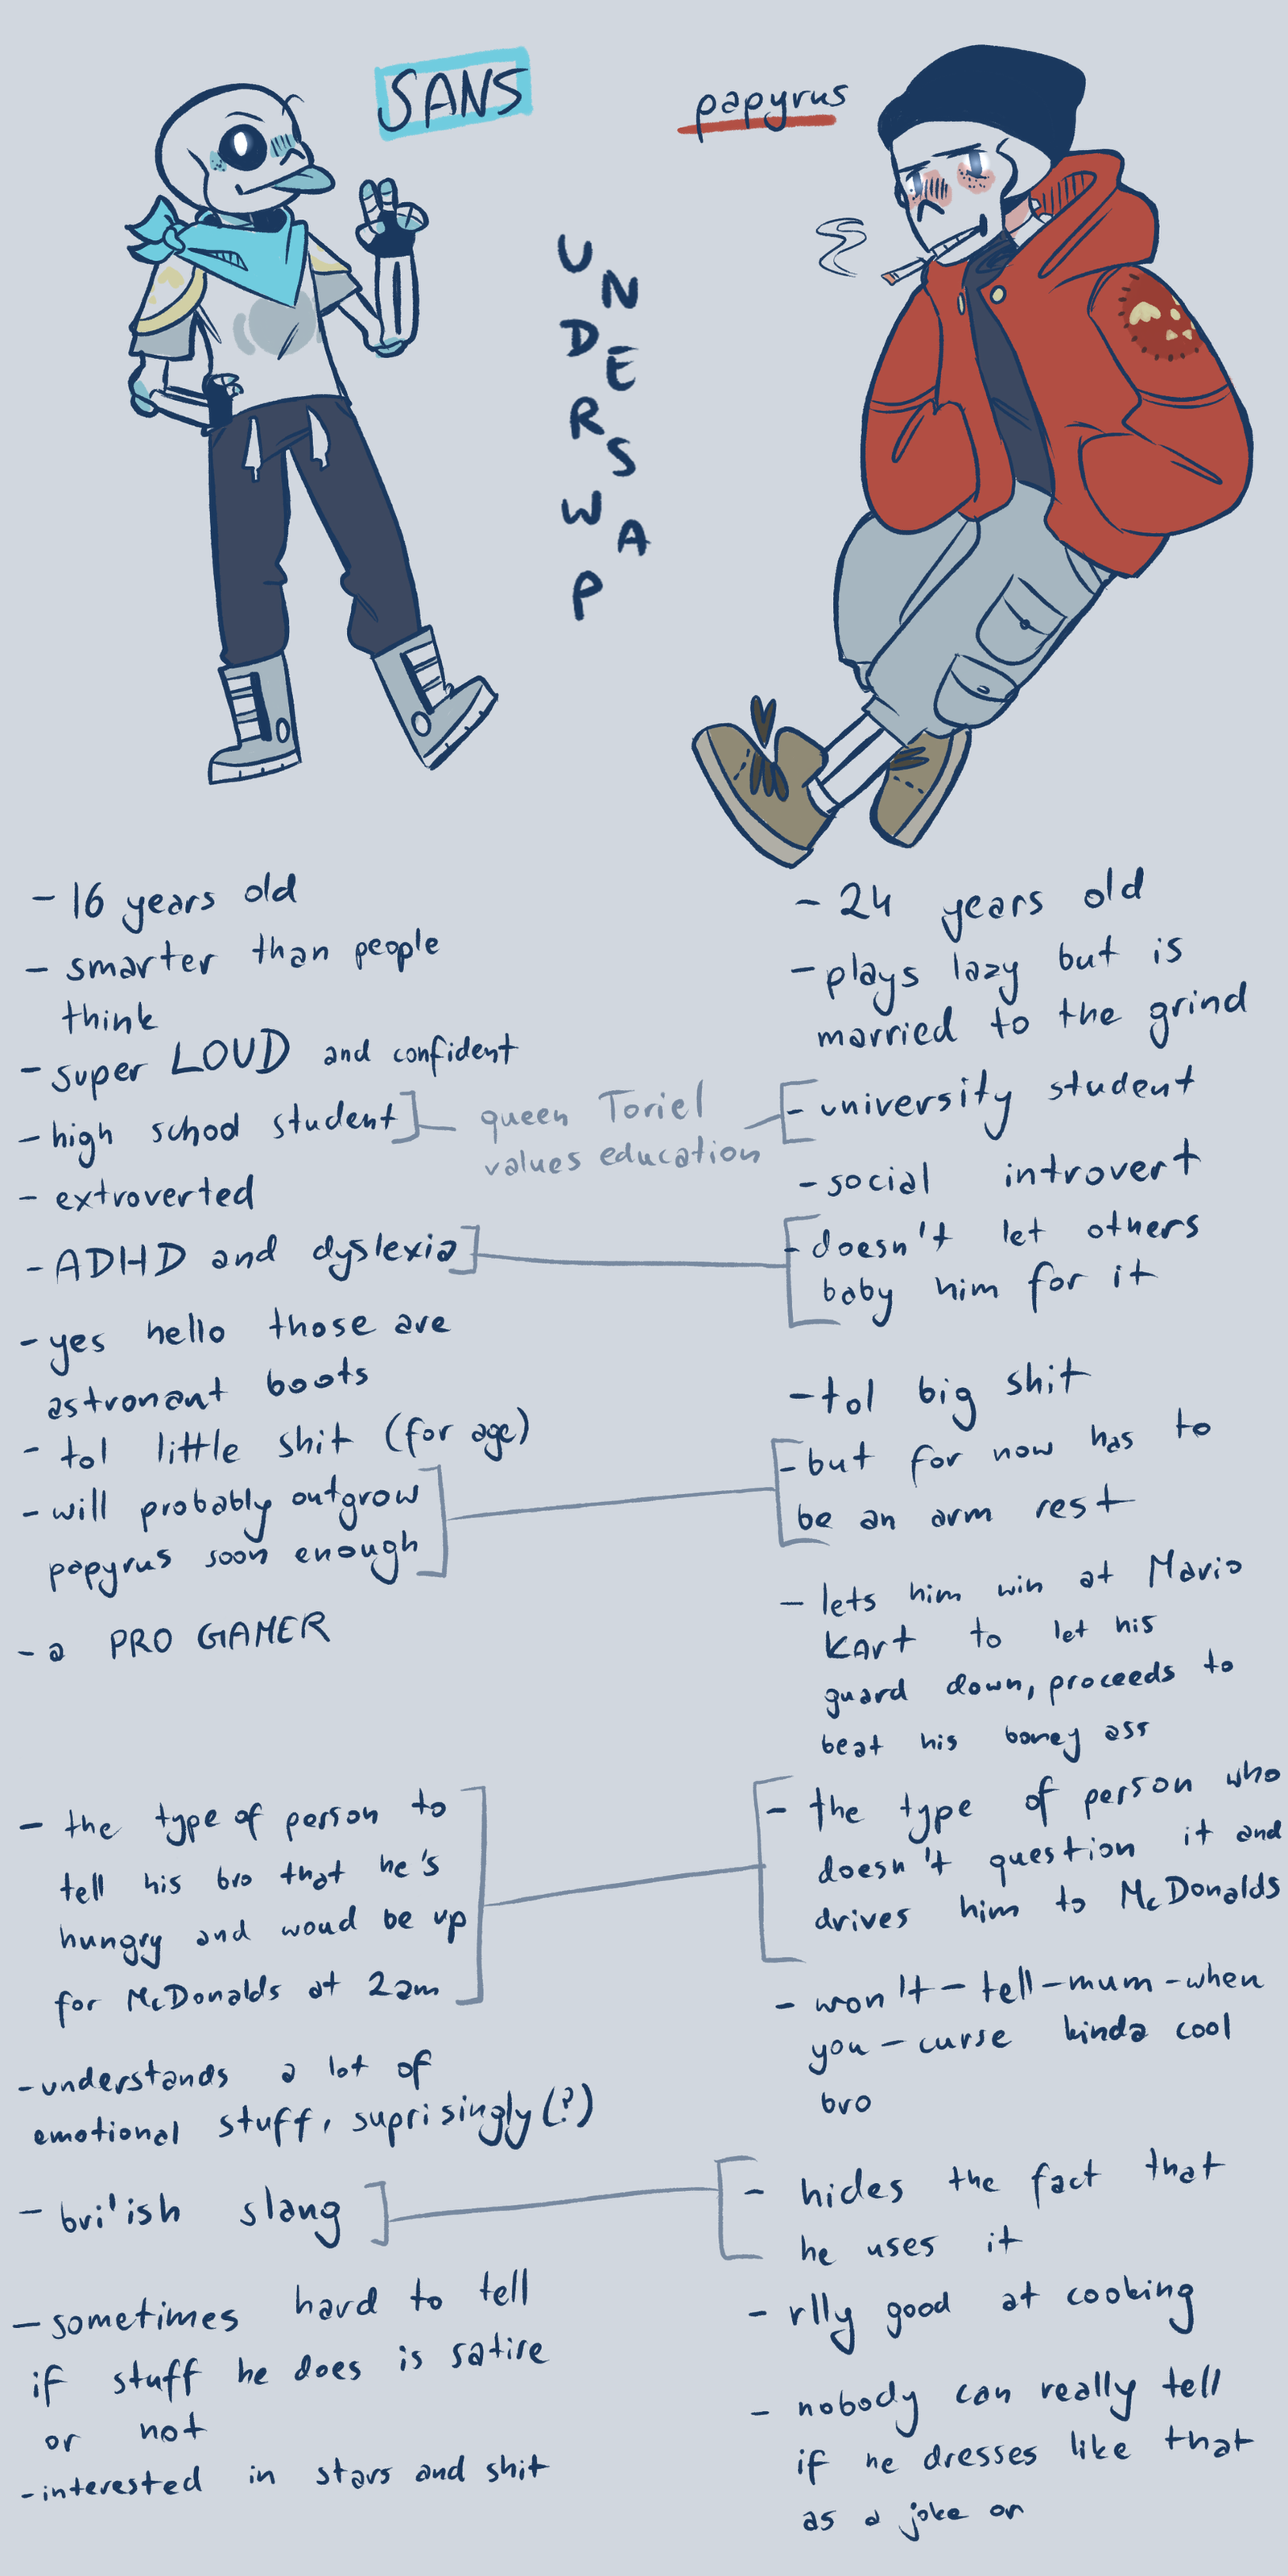 SANS
papyrus
UNDERSWAP
- 16 years old
- smarter than people
think
- super LOUD and confident
- high school student
- extroverted
- ADHD and dyslexia
- yes hello those are
astronant boots
- tol little shit (for age)
- will probably outgrow
papyrus soon enough
- a PRO GAMER
- the type of person to
tell his bro that he's
hungry and woud be up
for McDonalds at 2am
- understands a lot of
emotional stuff, suprisingly (?)
- bri'ish slang
- sometimes hard to tell
if stuff he does is satire
or not
- interested in stars and shit
queen Toriel
values education
- 24 years old
- plays lazy but is
married to the grind
- university student
- social introvert
- doesn't let others
baby him for it
- tol big shit
- but for now has to
be an arm rest
- lets him win at Mario
Kart to let his
guard down, proceeds to
beat his boney ass
- the type of person who
doesn't question it and
drives him to McDonalds
- won't-tell-mum-when
you-curse kinda cool
bro
- hides the fact that
he uses it
- rlly good at cooking
- nobody can really tell
if he dresses like that
as a joke or